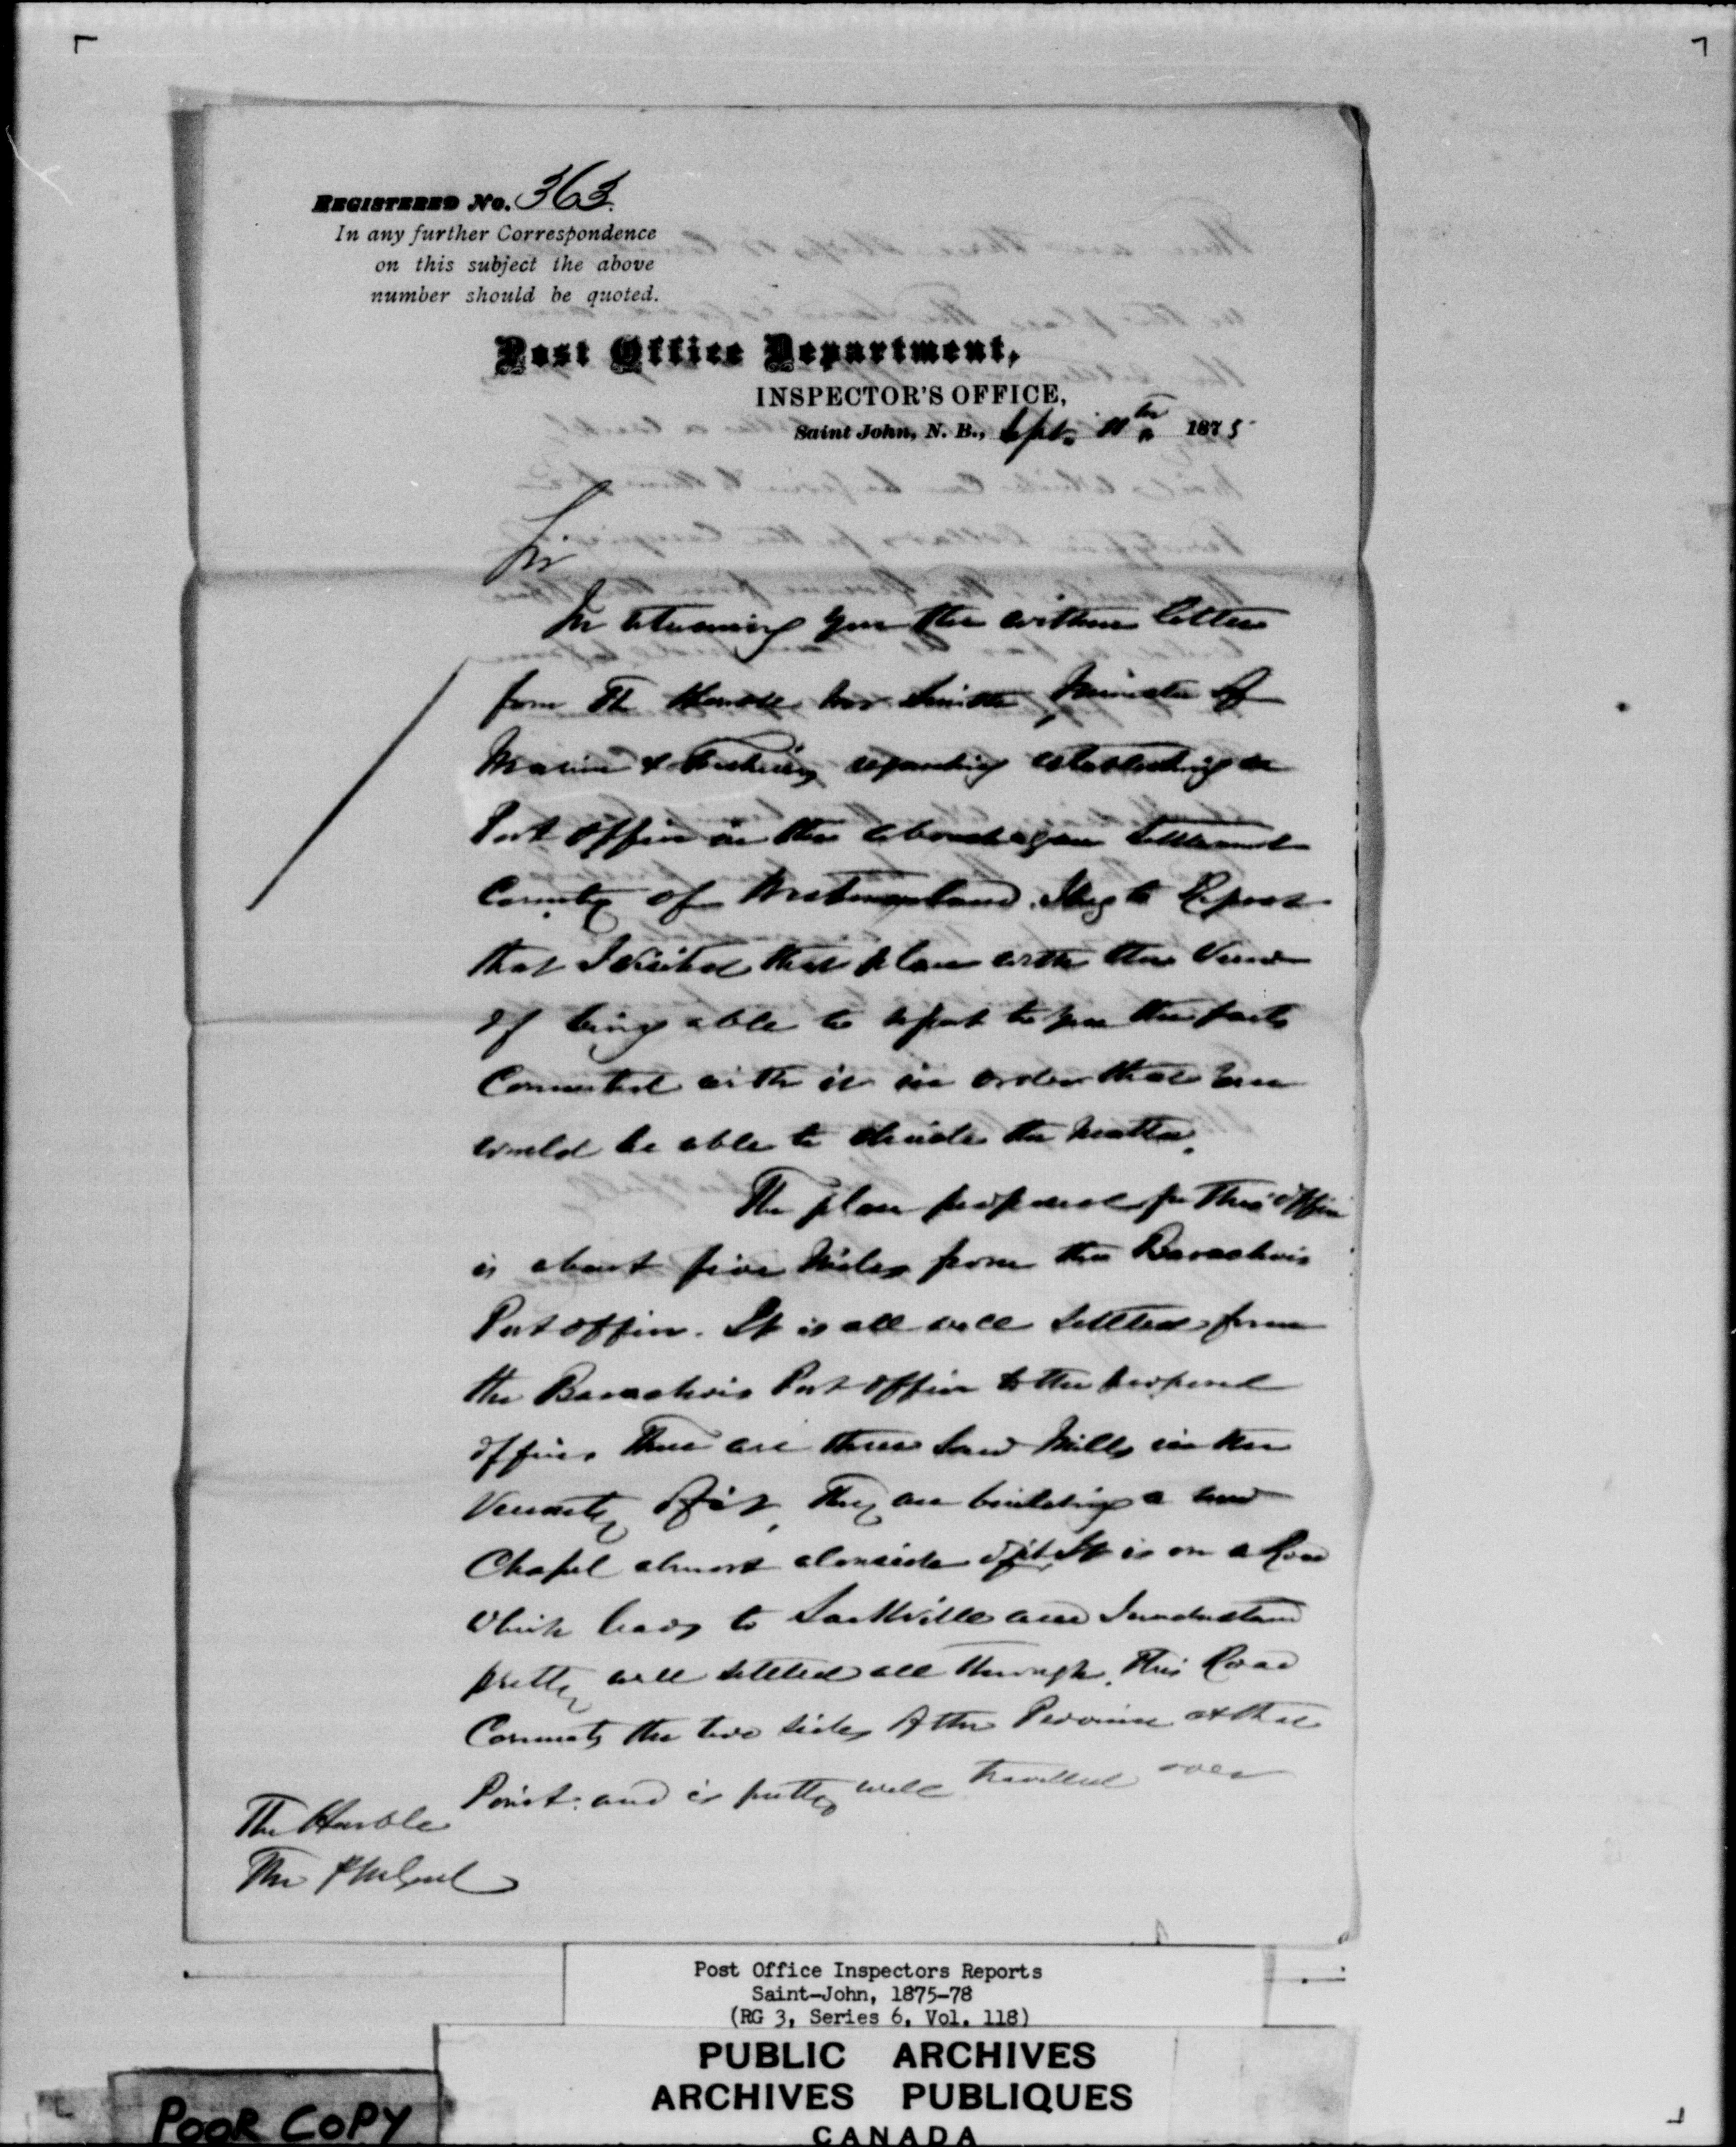 REGISTERED No. 363.
In any further Correspondence
on this subject the above
number should be quoted.
Post Office Department,
INSPECTOR'S OFFICE,
Saint John, N. B., Sept. 11th 1875
Sir
In returning you the within letter
from The Honble Mr Smith, Minister of
Marine & Fisheries regarding establishing a
Post Office in the Aboushagan Settlement
County of Westmorland. I beg to Report
that I visited that place with the view
of being able to report to you the facts
Connected with it in order that you
would be able to decide the matter.
The place proposed for this office
is about five Miles from the Barachois
Post office. It is all well settled from
the Barachois Post office to the proposed
office. There are three Saw Mills in the
Vicinity of it, They are building a new
Chapel almost alongside of it. It is on a Road
which leads to Sackville and I understand
pretty well settled all through. This Road
Connects the two sides of the Province at that
Point. and is pretty well travelled over
The Honble
The P M Genl
Post Office Inspectors Reports
Saint-John, 1875-78
(RG 3, Series 6, Vol. 118)
PUBLIC ARCHIVES
ARCHIVES PUBLIQUES
CANADA
POOR COPY